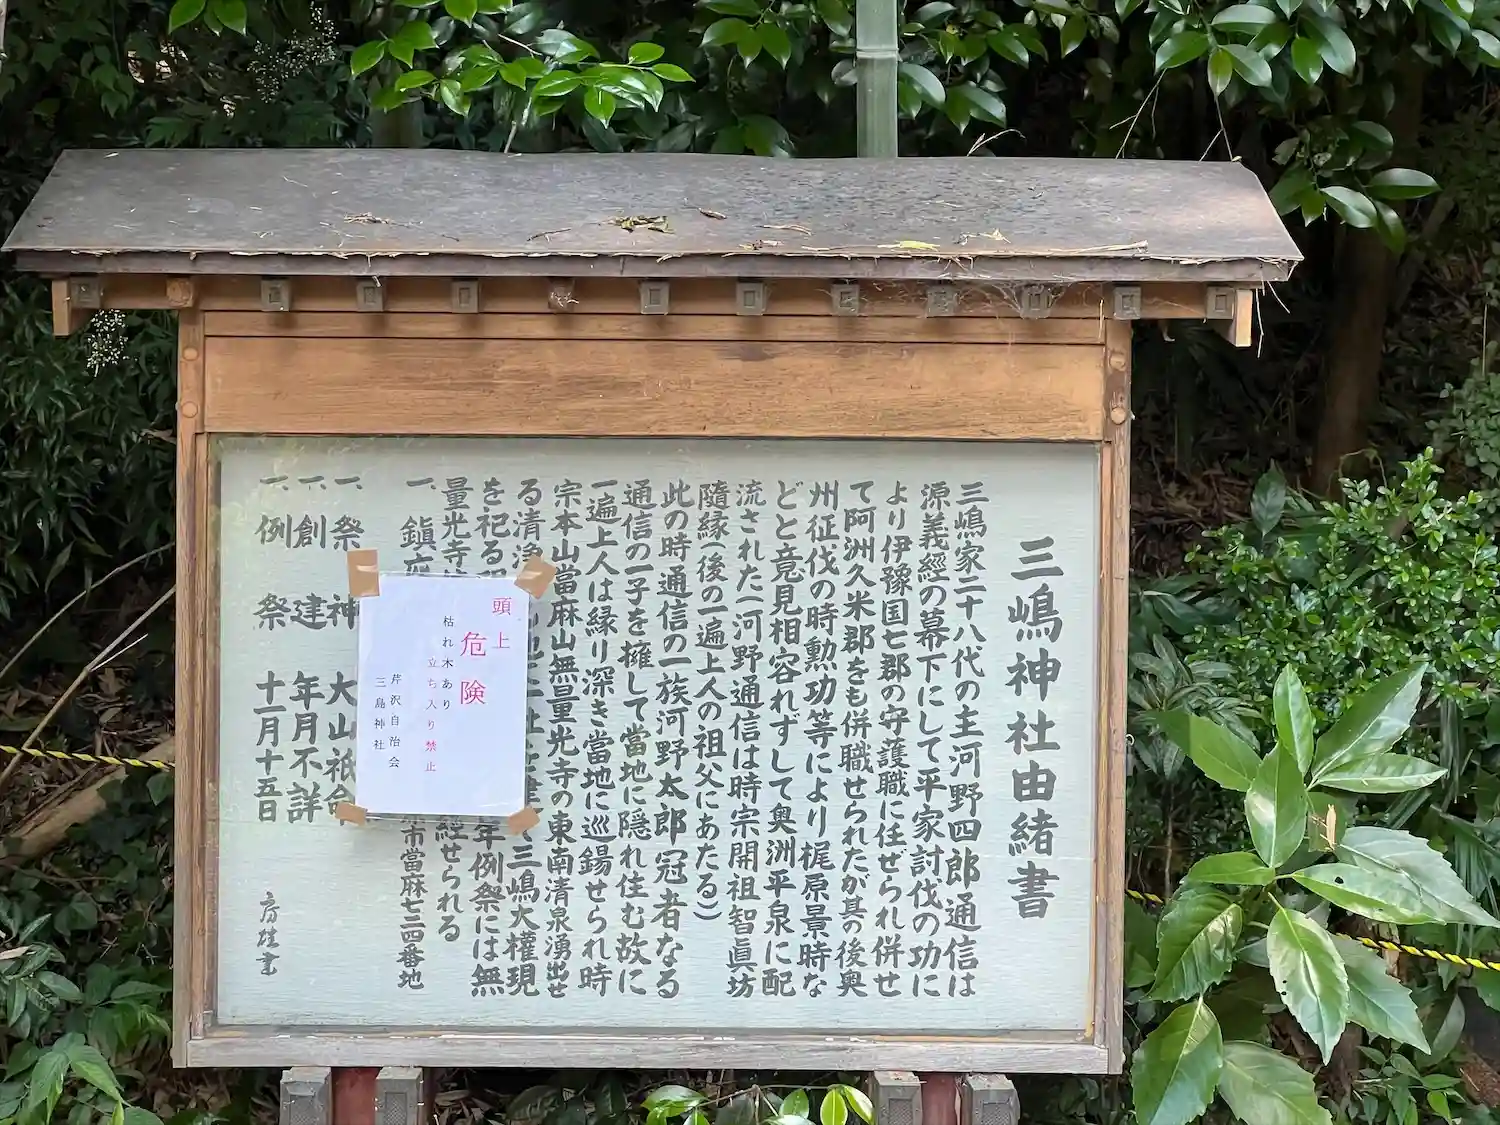 三嶋神社由緒書
三嶋家二十八代の主河野四郎通信は
源義經の幕下にして平家討伐の功に
より伊豫国七郡の守護職に任ぜられ併せ
て阿洲久米郡をも併職せられたが其の後奥
州征伐の時勲功等により梶原景時な
どと意見相容れずして奥洲平泉に配
流された(河野通信は時宗開祖智眞坊
隨縁(後の一遍上人の祖父にあたる)
此の時通信の一族河野太郎冠者なる
通信の一子を擁して当地に隠れ住む故に
一遍上人は縁り深き當地に巡錫せられ時
宗本山當麻山無量光寺の東南清泉湧出せ
る清浄 三嶋大權現
を祀る 年例祭には無
量光寺 經せられる
一、鎮座 市當麻七三四番地
一、祭神 大山祇命
一、創建 年月不詳
一、例祭 十一月十五日
頭上
危険
枯れ木あり
立ち入り禁止
芹沢自治会
三島神社